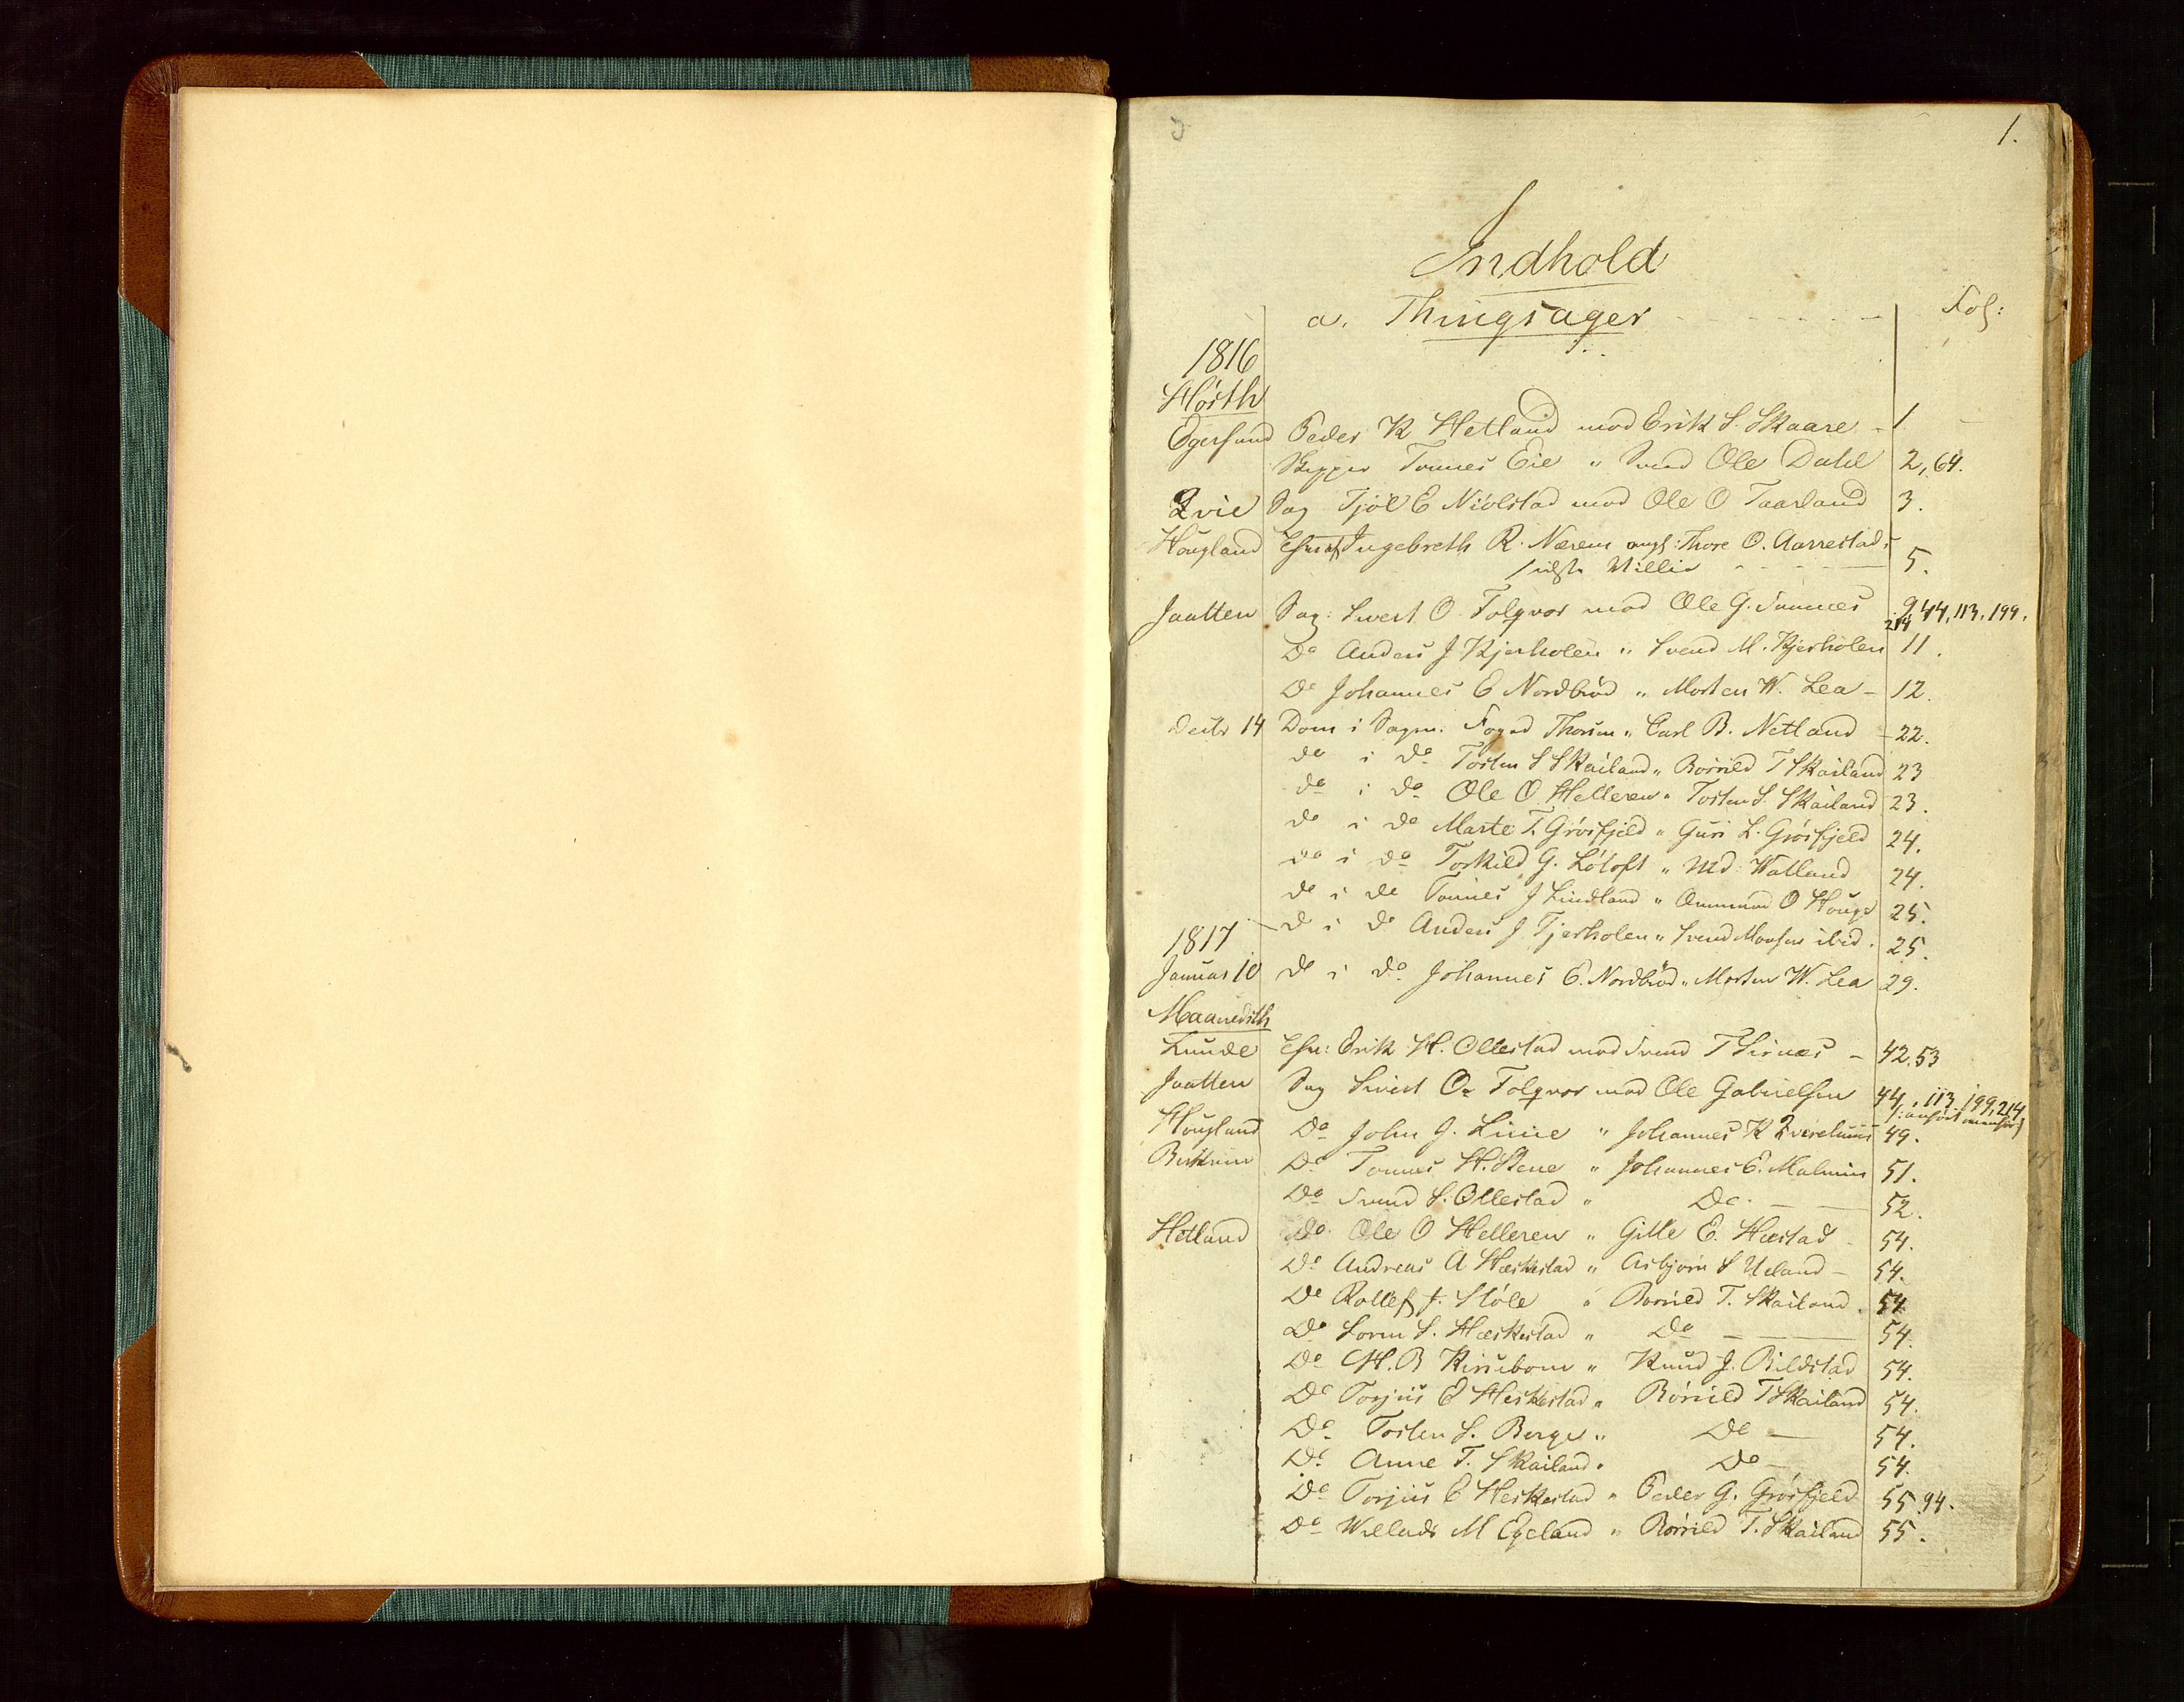 1.
Indhold
a. Thingsager
Fol:
1816
Hösth
Egersund Peder K Hetland mod Erik S. Skaare - 1
Skipper Tønnes Eie " Svend Ole Dahl 2, 64.
Qvie Sag Tjöl E Niölstad mod Ole O Taarland 3.
Hougland Ingebreth R. Nærem ang: Thore O. Aarrestads
sidste Villie 5.
Jaatten Sag: Sivert O Folqvor mod Ole G. 9, 44, 113, 199.
214
Do Anders J Kjerholen " Svend M. Kjerholen 11.
Do Johannes E Nordbröd " Morten W. Lea - 12.
Decbr 14 Dom i Sagen: Foged " Carl B. Netland - 22.
do i do Torsten S Skailand " Börrild T Skailand 23
do i do Ole O Helleren " Torsten S. Skailand 23.
do i do Marte T. Grösfjeld " Guri L. Grösfjeld 24.
do i do Torkild G. Lötoft " Md: Watland 24.
do i do Tønnes J Lindland " Ommund O Houge 25.
1817 do i do Anders J Tjerholen " Svend ibid. 25.
Januar 10 do i do Johannes E. Nordbröd " Morten W. Lea 29.
Maanedsth
Lunde Erik H. Ollestad mod Svend T - 42, 53
Jaatten Sag Sivert O. Folqvor mod Ole Gabrielsen 44, 113, 199, 214
Hougland Do John G. " Johannes K 49.
Birkrem Do Tønnes H. Stene " Johannes E. Malmin 51.
Do Svend S. Ollestad " Do - 52.
Hetland Do Ole O Helleren " Gitle E. Hæstad 54.
Do Andreas A Hæskestad " Asbjörn S Ueland - 54.
Do Rollef J. Stöle " Börrild T. Skailand 54
Do Soren S. Hæskestad " Do - 54.
Do H. B " Knud J. Bildstad 54.
Do Torjus E Heskestad " Börrild T Skailand 54.
Do Torsten S. Berge " Do - 54.
Do Anne T. Skailand " Do - 54.
Do Torjus E Heskestad " Peder G. Grösfjeld 55, 94.
Do Willads M Egeland " Börrild T. Skailand 55.